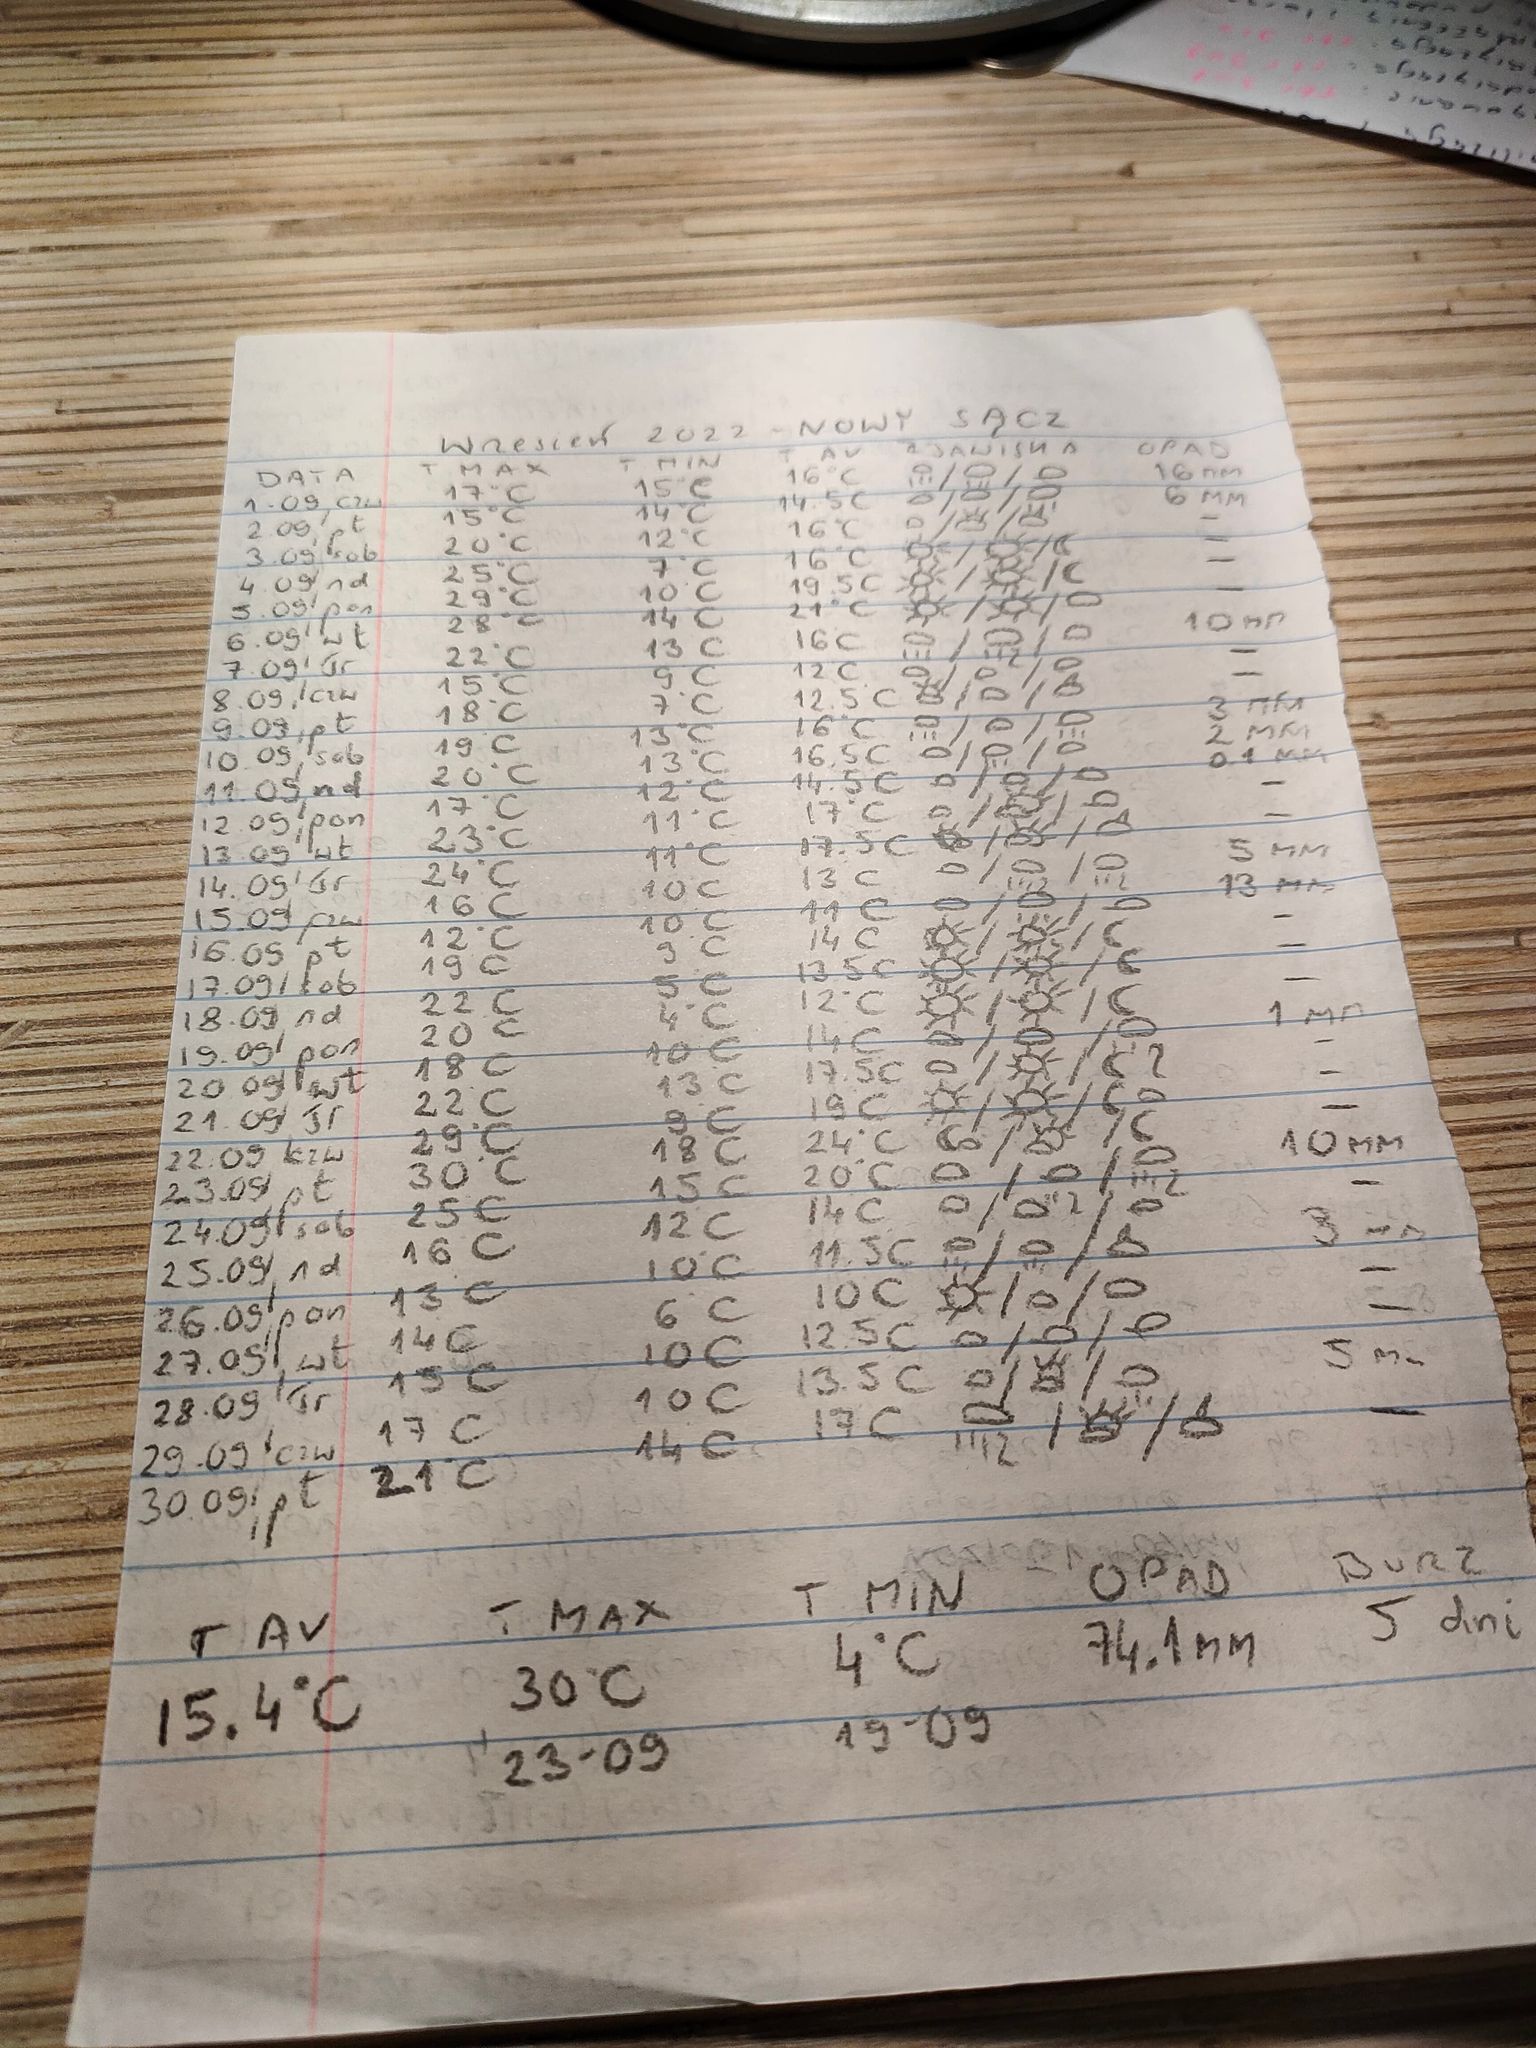 Wrzesień 2022 - NOWY SĄCZ
DATA T MAX T MIN T AV ZJAWISKA OPAD
1.09, czw 17°C 15°C 16°C 16 mm
2.09, pt 15°C 14°C 14.5C 6 MM
3.09, sob 20°C 12°C 16°C -
4.09, nd 25°C 7°C 16°C -
5.09, pon 29°C 10°C 19.5C -
6.09, wt 28°C 14°C 21°C
7.09, śr 22°C 13°C 16C 10 mm
8.09, czw 15°C 9°C 12C -
9.09, pt 18°C 7°C 12.5°C -
10.09, sob 19°C 13°C 16°C 3 mm
11.09, nd 20°C 13°C 16.5C 2 MM
12.09, pon 17°C 12°C 14.5C 0.1 MM
13.09, wt 23°C 11°C 17°C -
14.09, śr 24°C 11°C 17.5C -
15.09, czw 16°C 10C 13C 5 MM
16.09 pt 12°C 10C 11C 13 mm
17.09, sob 19°C 9°C 14C -
18.09 nd 22°C 5°C 13.5C -
19.09, pon 20°C 4°C 12°C -
20.09, wt 18°C 10C 14C 1 mm
21.09, śr 22°C 13°C 17.5C -
22.09 czw 29°C 9°C 19C -
23.09, pt 30°C 18°C 24°C -
24.09, sob 25C 15C 20°C 10 MM
25.09, nd 16°C 12C 14C -
26.09, pon 13°C 10°C 11.5C 3 mm
27.09, wt 14C 6°C 10C -
28.09, śr 15C 10C 12.5C -
29.09, czw 17C 10C 13.5C 5 mm
30.09, pt 21°C 14C 17C -
T AV T MAX T MIN OPAD BURZ
15.4°C 30°C 4°C 74.1MM 5 dni
23-09 19-09